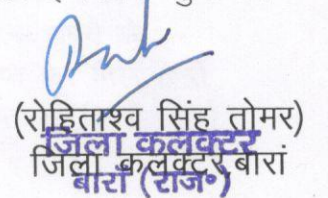 (रोहिताश्व सिंह तोमर)
जिला कलक्टर
जिला कलक्टर बारां
बारां (राज॰)